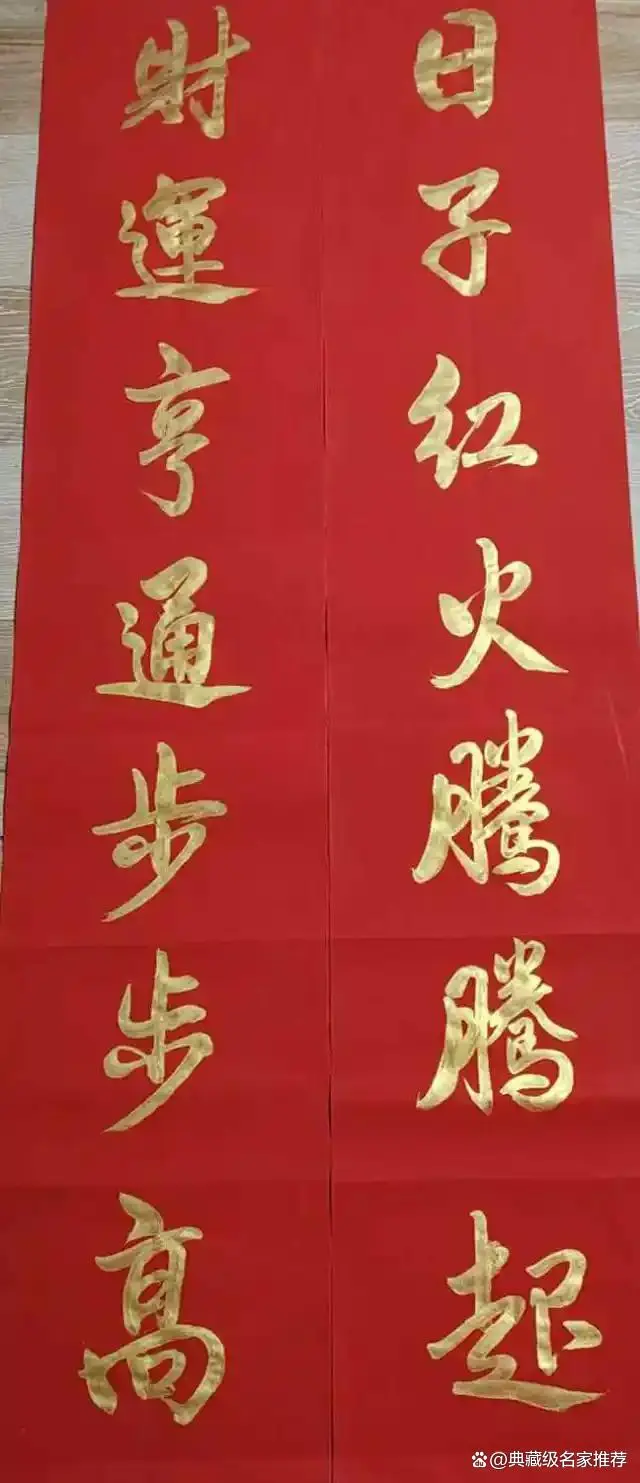 日子红火騰騰起
財運亨通步步高
@典藏级名家推荐